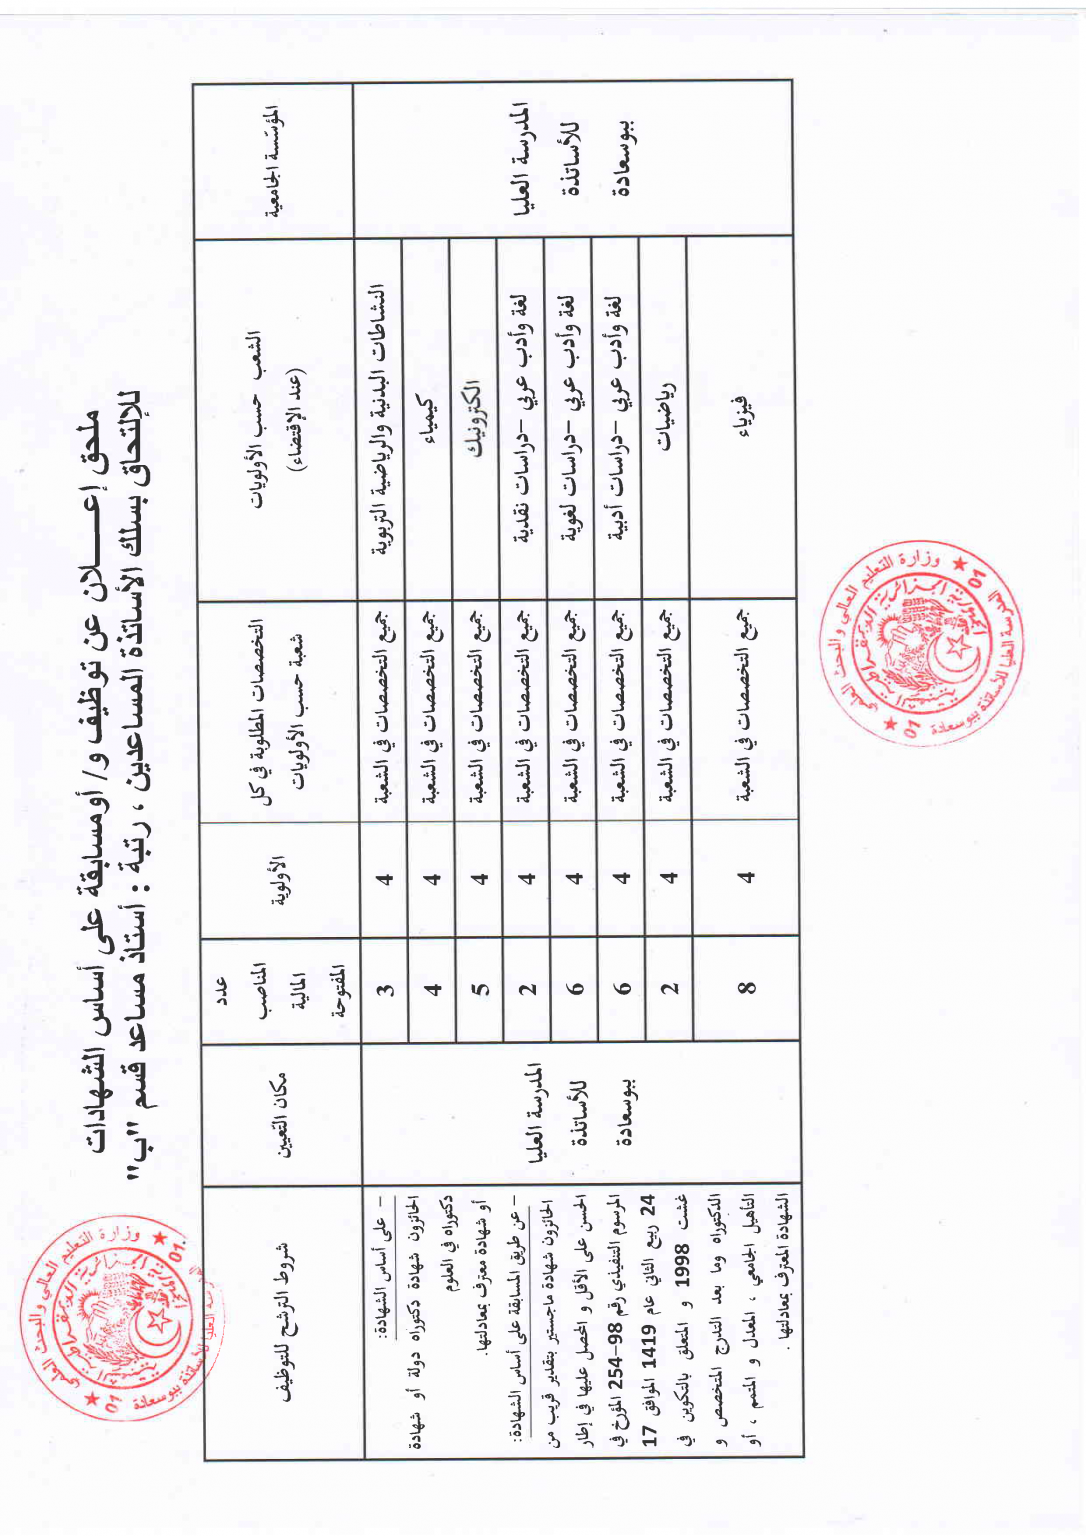 ملحق إعـــــلان عن توظيف و/ أومسابقة على أساس الشهادات
للإلتحاق بسلك الأساتذة المساعدين ، رتبة : أستاذ مساعد قسم "ب"
المؤسّسة الجامعية
الشعب حسب الأولويات
(عند الإقتضاء)
التخصصات المطلوبة في كل
شعبة حسب الأولويات
الأولوية
عدد
المناصب
المالية
المفتوحة
مكان التعيين
شروط الترشح للتوظيف
المدرسة العليا
للأساتذة
ببوسعادة
النشاطات البدنية والرياضية التربوية
جميع التخصصات في الشعبة
4
3
كيمياء
جميع التخصصات في الشعبة
4
4
الكترونيك
جميع التخصصات في الشعبة
4
5
لغة وأدب عربي –دراسات نقدية
جميع التخصصات في الشعبة
4
2
لغة وأدب عربي –دراسات لغوية
جميع التخصصات في الشعبة
4
6
لغة وأدب عربي –دراسات أدبية
جميع التخصصات في الشعبة
4
6
رياضيات
جميع التخصصات في الشعبة
4
2
فيزياء
جميع التخصصات في الشعبة
4
8
المدرسة العليا
للأساتذة
ببوسعادة
– على أساس الشهادة:
الحائزون شهادة دكتوراه دولة أو شهادة
دكتوراه في العلوم
أو شهادة معترف بمعادلتها.
– عن طريق المسابقة على أساس الشهادة:
الحائزون شهادة ماجستير بتقدير قريب من
الحسن على الأقل و المحصل عليها في إطار
المرسوم التنفيذي رقم 98–254 المؤرخ في
24 ربيع الثاني عام 1419 الموافق 17
غشت 1998 و المتعلق بالتكوين في
الدكتوراه وما بعد التدرج المتخصص و
التأهيل الجامعي ، المعدل و المتمم ، أو
الشهادة المعترف بمعادلتها .
وزارة التعليم العالي و البحث العلمي
المدرسة العليا للأساتذة ببوسعادة
الجمهورية الجزائرية الديمقراطية الشعبية
01
01
وزارة التعليم العالي و البحث العلمي
المدرسة العليا للأساتذة ببوسعادة
الجمهورية الجزائرية الديمقراطية الشعبية
01
01